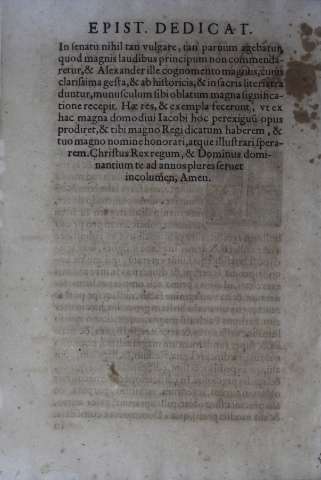 EPIST. DEDICAT.
In senatu nihil tan vulgare, tan paruum agebatur,
quod magnis laudibus principum non commenda-
retur, & Alexander ille cognomento magnus, cuius
clarissima gesta, & ab historicis, & in sacris literis tra
duntur, munusculum sibi oblatum magna significa-
tione recepit. Hæ res, & exempla fecerunt, vt ex
hac magna domo diui Iacobi hoc perexiguũ opus
prodiret, & tibi magno Regi dicatum haberem, &
tuo magno nomine honorari, atque illustrari spera-
rem. Christus Rex regum, & Dominus domi-
nantium te ad annos plures seruet
incolumen, Amen.